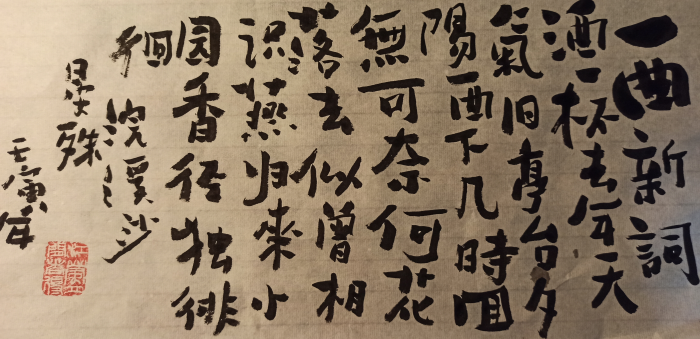 一曲新詞
酒一杯去年天
氣旧亭台夕
陽西下几時回
無可奈何花
落去似曾相
识燕归來小
园香径独徘
徊
浣溪沙
晏殊
壬寅年